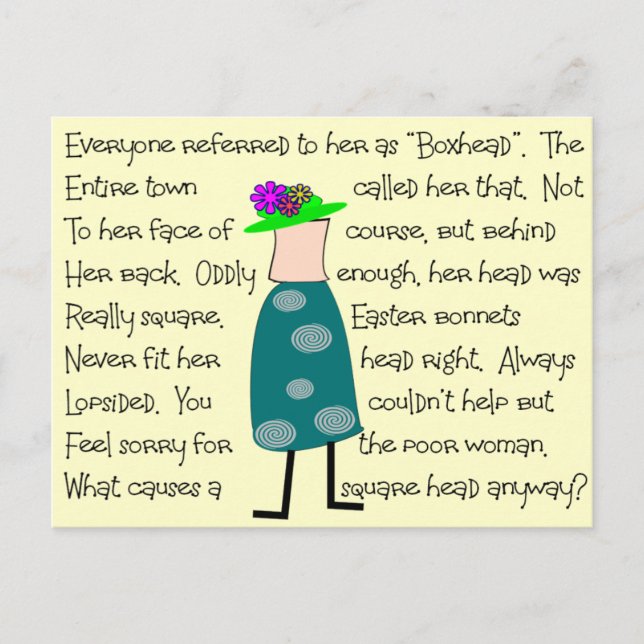 Everyone referred to her as “Boxhead”. The
Entire town called her that. Not
To her face of course, but behind
Her back. Oddly enough, her head was
Really square. Easter bonnets
Never fit her head right. Always
Lopsided. You couldn't help but
Feel sorry for the poor woman.
What causes a square head anyway?